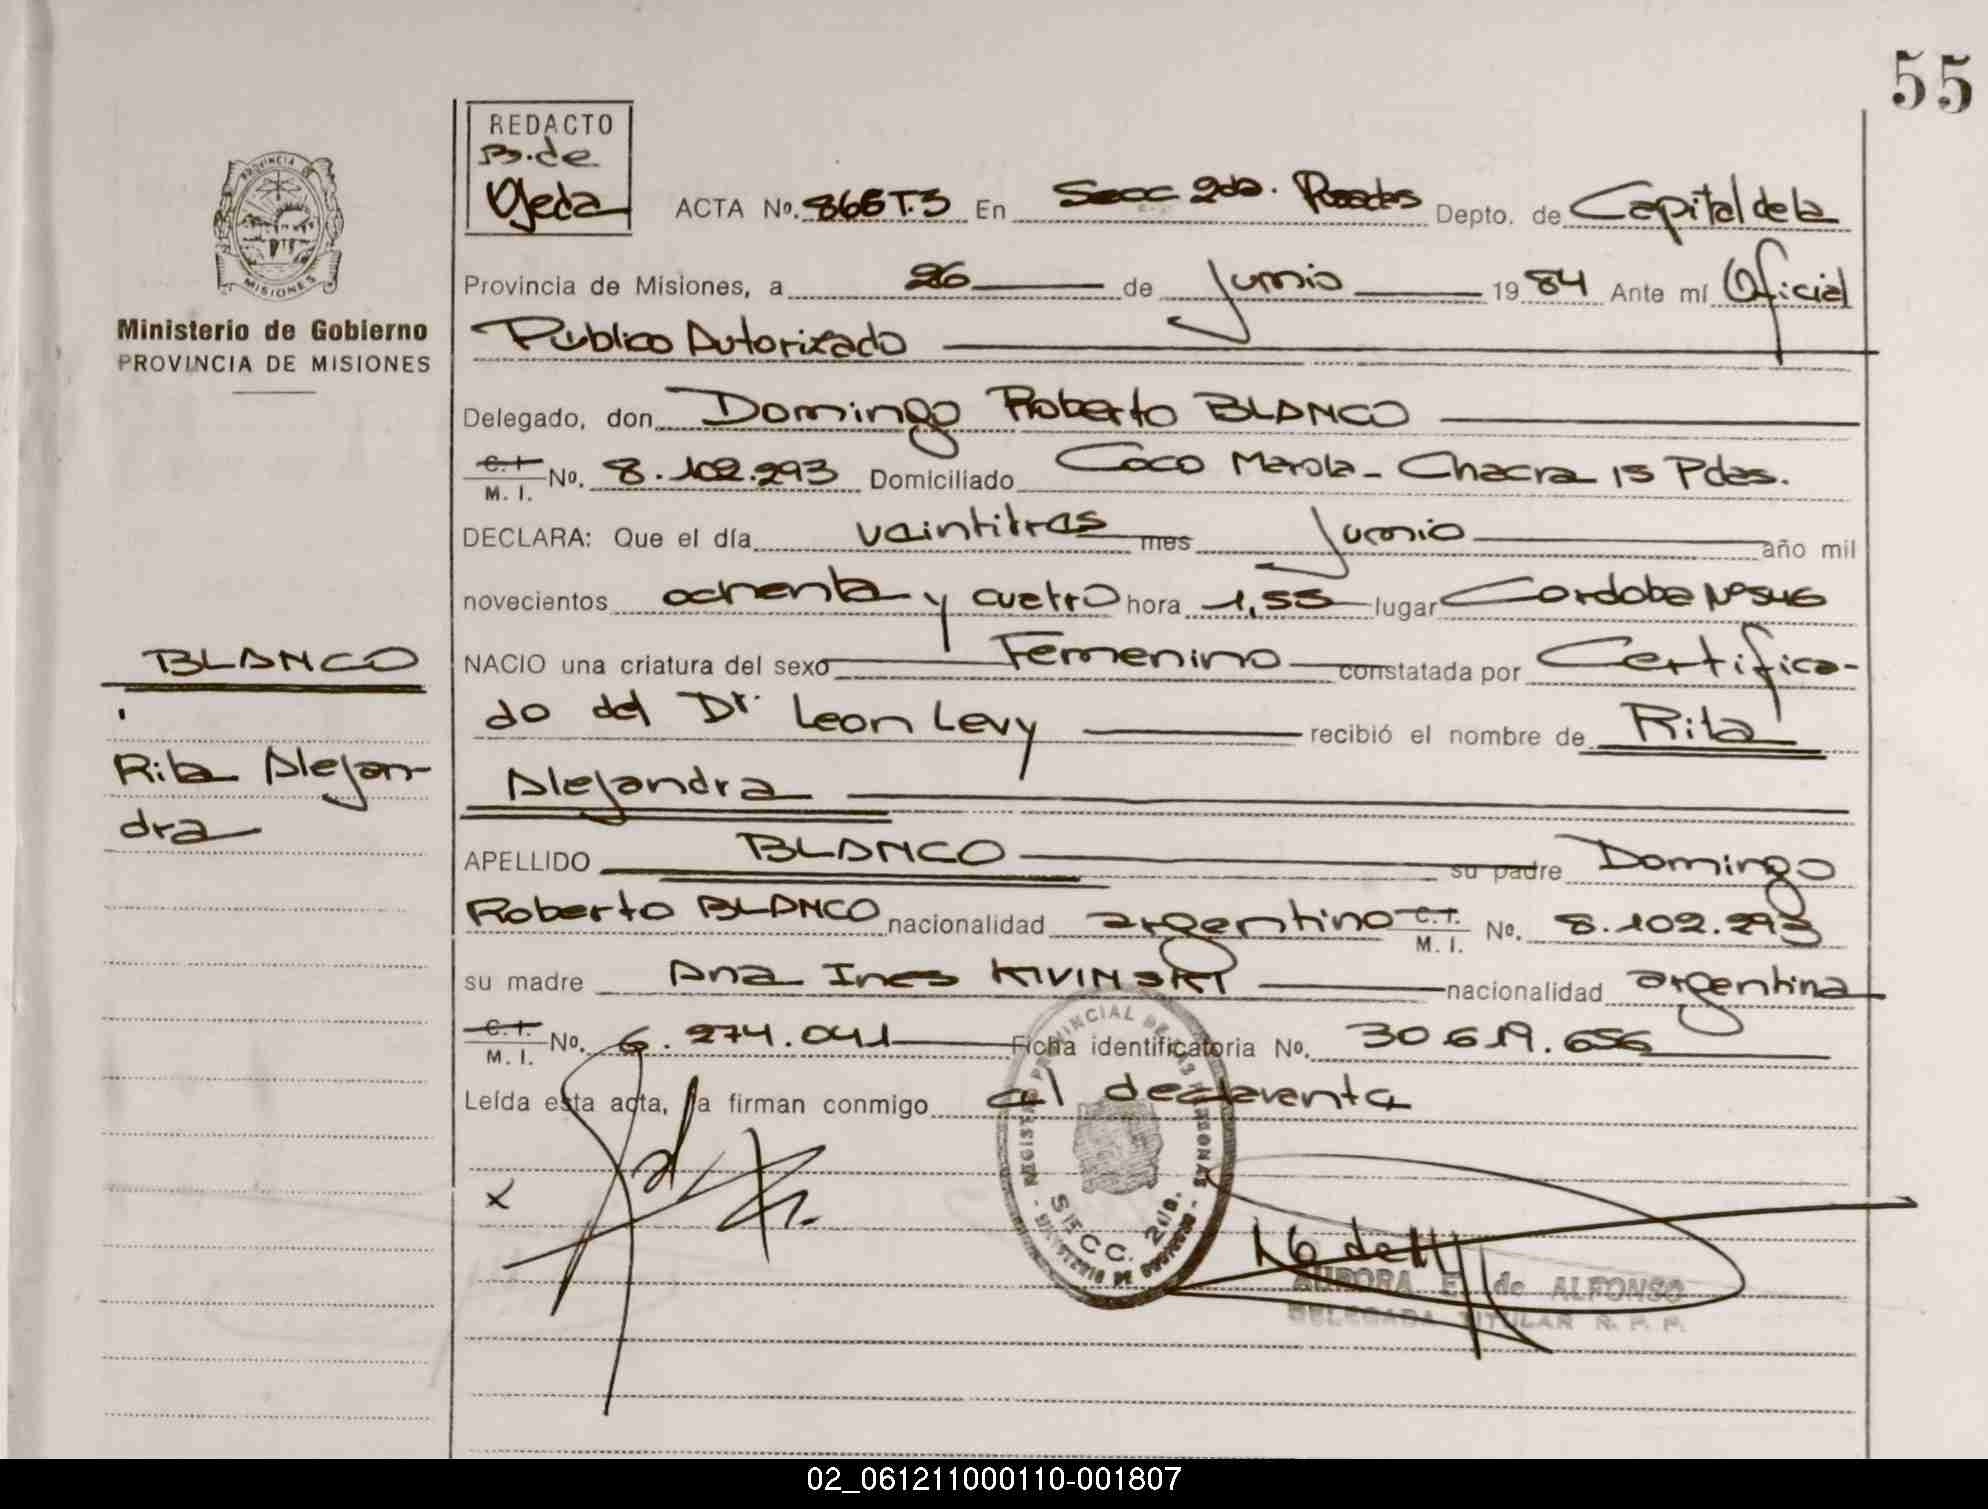 55
REDACTO
B. de
Ojeda
ACTA No. 866 T.3 En Secc 2da. Posadas Depto. de Capital de la
Provincia de Misiones, a 26 de Junio 1984 Ante mí Oficial
Público Autorizado
Delegado, don Domingo Roberto BLANCO
C. I. M. I. No. 8.102.293 Domiciliado Coco Marola - Chacra 15 Pdas.
DECLARA: Que el día veintitres mes Junio año mil
novecientos ochenta y cuatro hora 1,55 lugar Cordoba Nº546
NACIO una criatura del sexo Femenino constatada por Certifica-
do del Dr. Leon Levy recibió el nombre de Rita
Alejandra
APELLIDO BLANCO su padre Domingo
Roberto BLANCO nacionalidad argentino C. I. M. I. No. 8.102.293
su madre Ana Ines KIVINSKI nacionalidad argentina
C. I. M. I. No. 6.274.041 Ficha identificatoria No. 30.619.656
Leída esta acta, la firman conmigo el declarante
x
PROVINCIA DE
MISIONES
Ministerio de Gobierno
PROVINCIA DE MISIONES
BLANCO
Rita Alejan-
dra
REGISTRO PROVINCIAL DE LAS PERSONAS
SECC. 2da.
MINISTERIO DE GOBIERNO
AURORA E. de ALFONSO
DELEGADA TITULAR R. P. P.
02_061211000110-001807